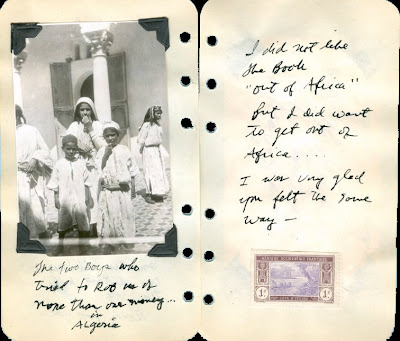 The Two Boys who
tried to Rob us of
more than our money...
in
Algeria
I did not like
the Book
"out of Africa"
But I did want
to get out of
Africa.....
I was very glad
you felt the same
way —
1c
1c